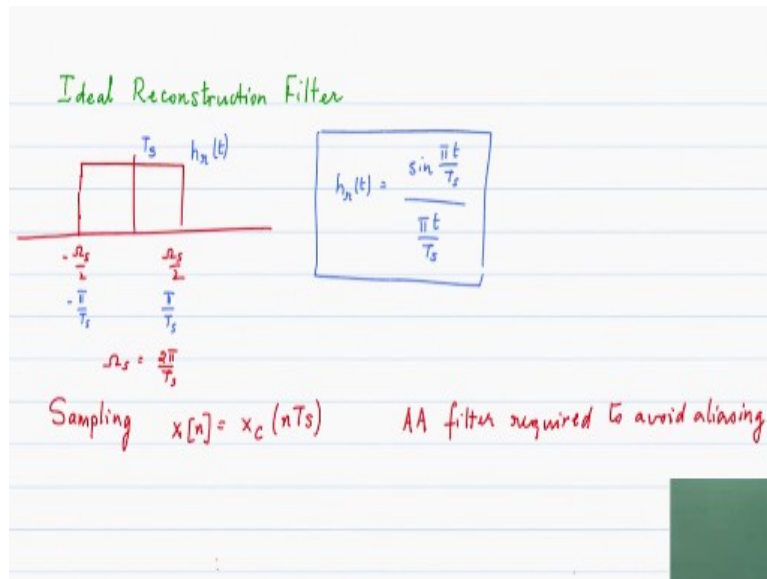 Ideal Reconstruction Filter
Ts hr(t)
hr(t) = sin πt/Ts / πt/Ts
-Ωs/2 Ωs/2
-π/Ts π/Ts
Ωs = 2π/Ts
Sampling x[n] = xc(nTs) AA filter required to avoid aliasing